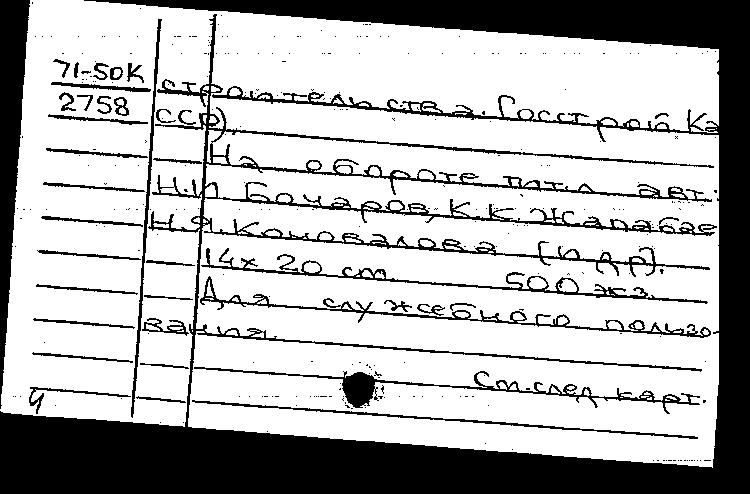 71-50К строительства. Госстрой Ка
2758 ССР).
На обороте тит.л авт:
Н.И. Бочаров, К.К. Жапабае
Н.Я. Коновалова [и др].
14х20 см. 500 экз.
Для служебного пользо-
вания.
См. след. карт.
4